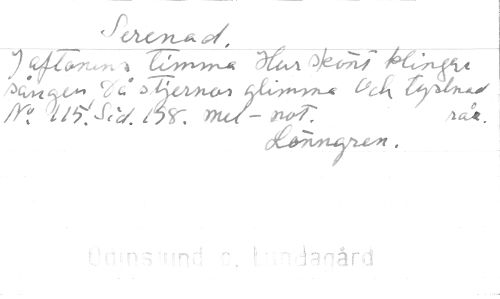 Serenad.
I aftonens timma Hur skönt klingar
sången Då stjernor glimma Och tystnad
rår.
No 115. Sid. 158. mel-not.
Lönngren.
Odinslund o. Lundagård